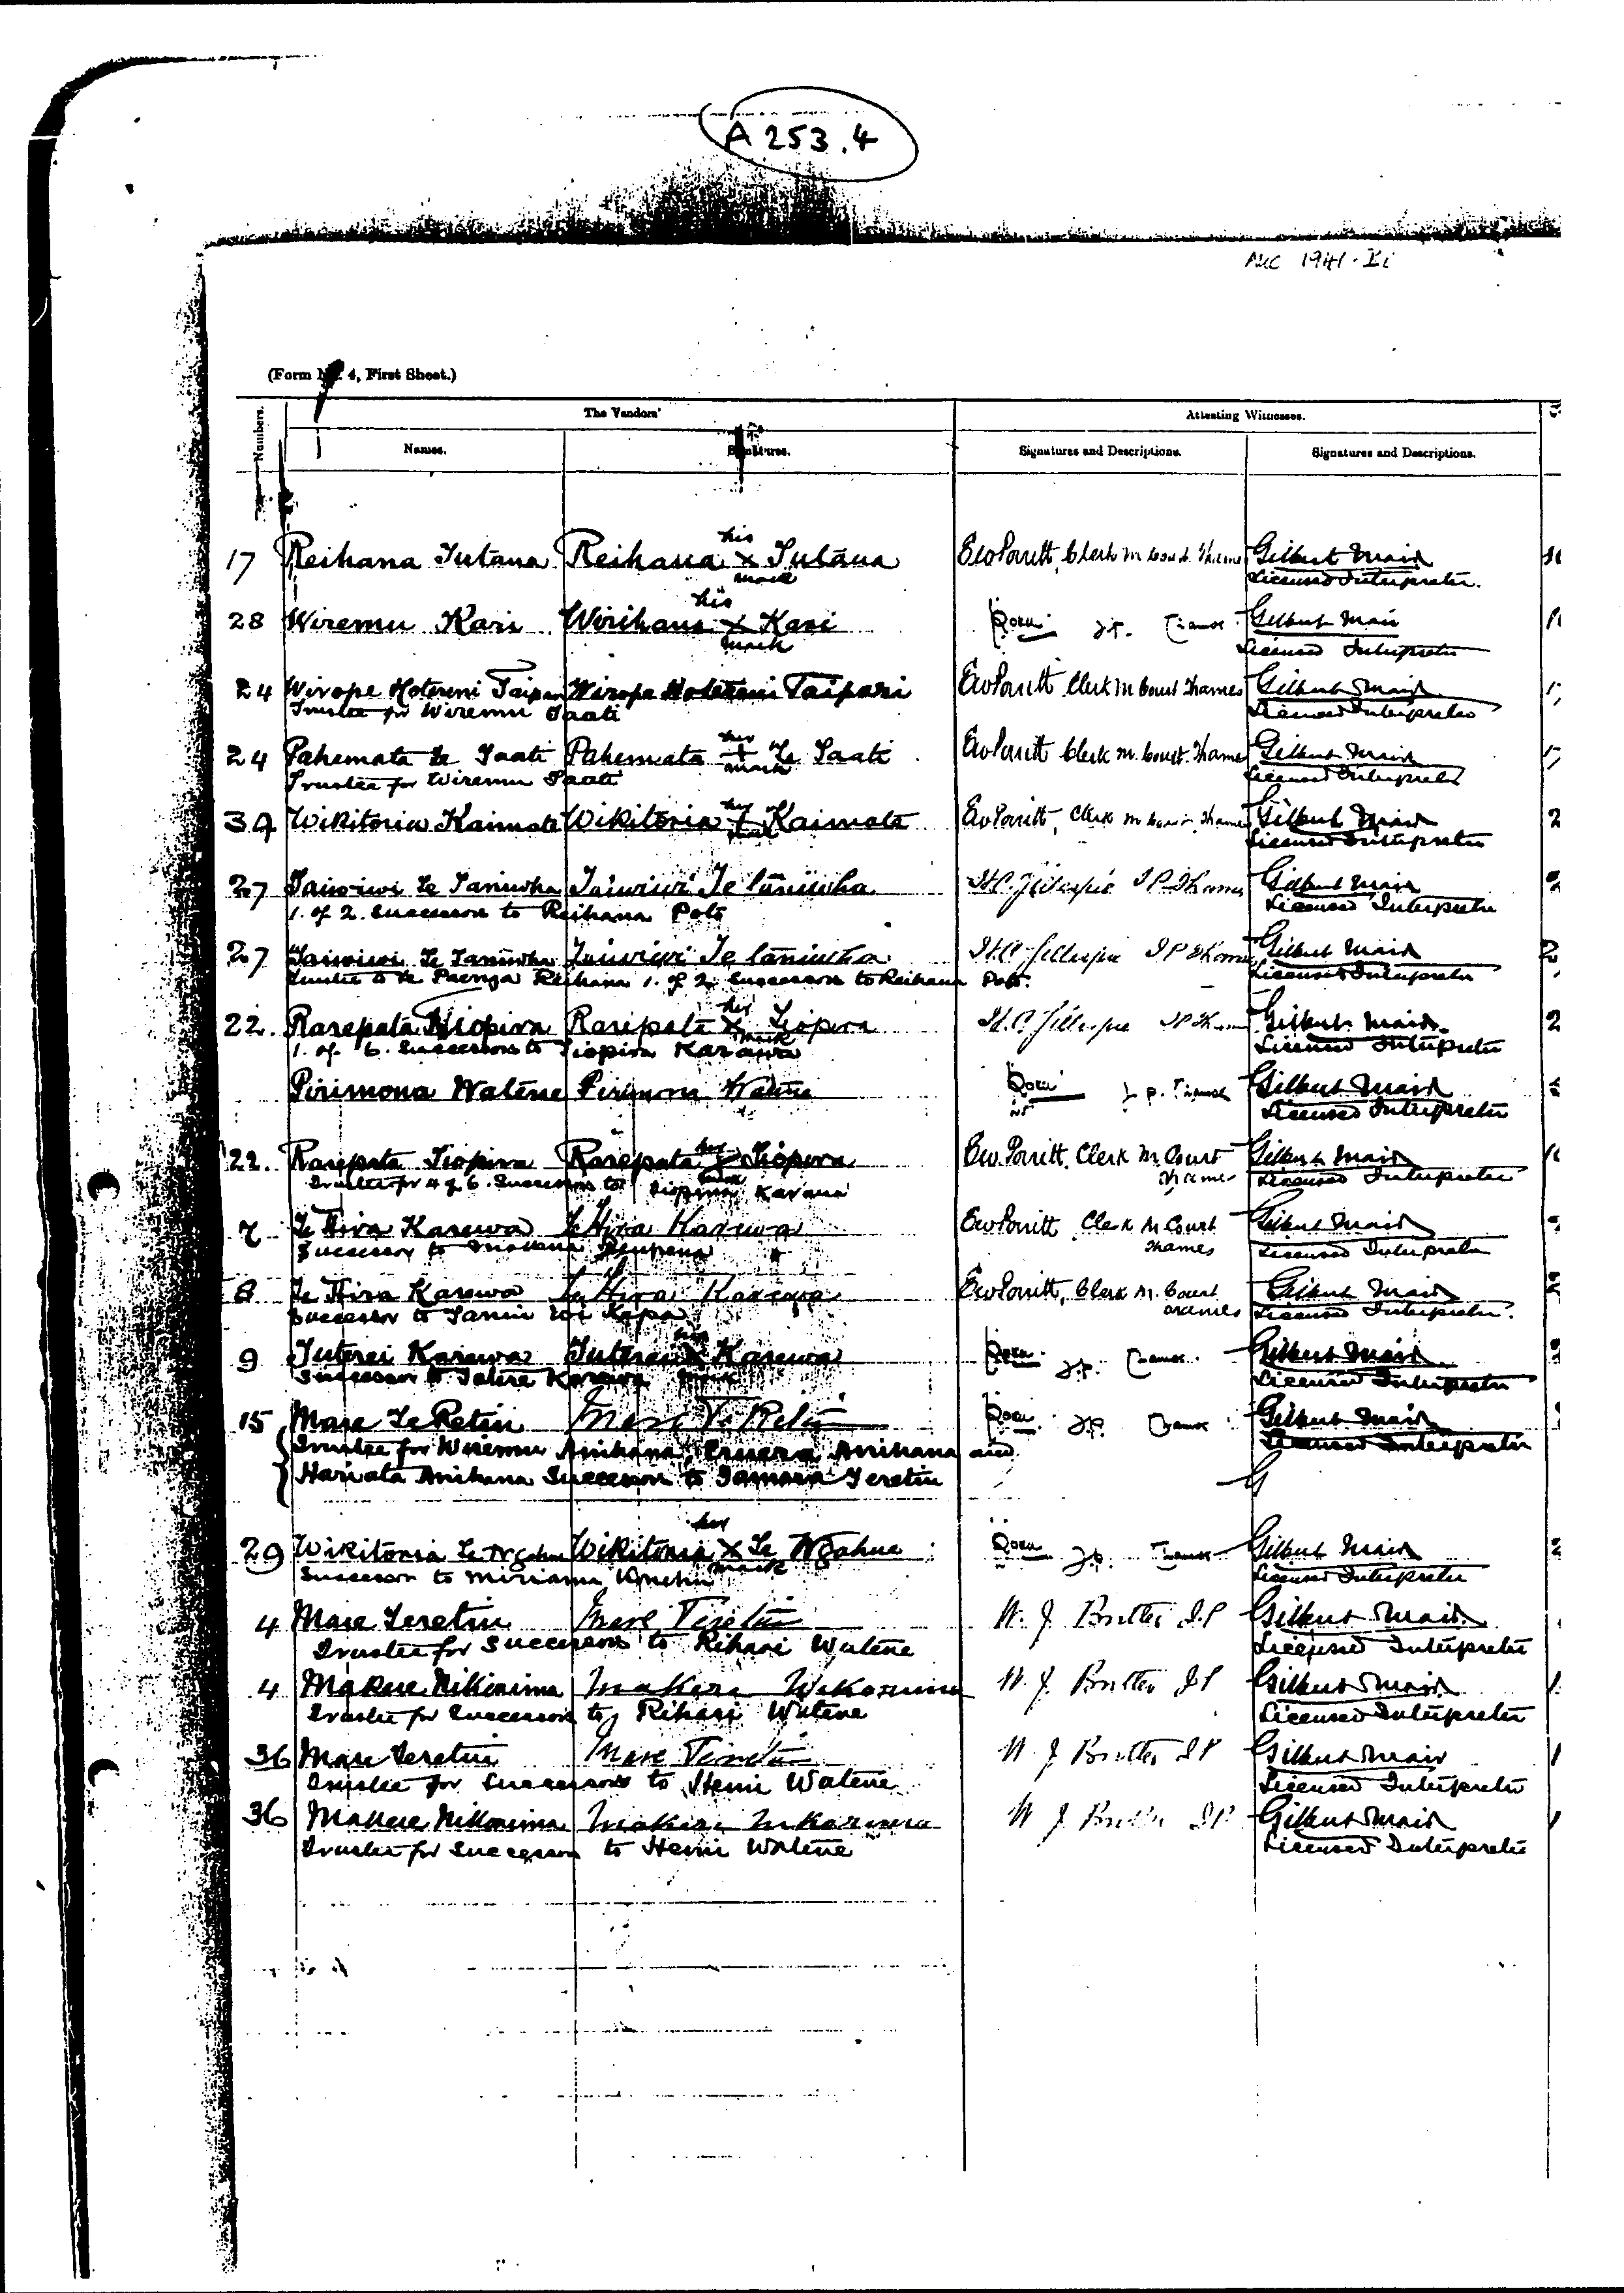 A 253.4
AKC 1941. Ii
(Form No. 4, First Sheet.)
Numbers. The Vendors' Attesting Witnesses.
Names. Signatures. Signatures and Descriptions. Signatures and Descriptions.
his
17 Reihana Tutana Reihana x Tutana Clerk M Court Thames Gilbert Mair
mark Licensed Interpreter.
his
28 Wiremu Kari x Kari J.P. Thames Gilbert Mair
mark Licensed Interpreter
24 Wirope Hotereni Taipari Wirope Hotereni Taipari Clerk M Court Thames Gilbert Mair
Trustee for Wiremu Taati Licensed Interpreter
her
24 Pahemata te Taati Pahemata + Te Taati Clerk M. Court. Thames Gilbert Mair
mark
Trustee for Wiremu Taati Licensed Interpreter
her
34 Wikitoria Kaimate Wikitoria + Kaimate Clerk M Court Thames Gilbert Mair
mark Licensed Interpreter
27 Taiwiwi Te Taniwha Taiwiwi Te Taniwha H.C. Gillespie J P Thames Gilbert Mair
1. of 2. Successors to Reihana Poto Licensed Interpreter
27 Taiwiwi Te Taniwha Taiwiwi Te Taniwha H.C. Gillespie J P Thames Gilbert Mair
Trustee to Te Paenga Reihana 1. of 2 Successors to Reihana Poto. Licensed Interpreter
her
22. Rarepata Tiopira Raripata x Tiopira H.C. Gillespie J P Thames Gilbert Mair.
mark
1. of 6. Successors to Tiopira Karawa Licensed Interpreter
Pirimona Watene Pirimona Watene J.P. Thames Gilbert Mair
Licensed Interpreter
her
22. Rarepata Tiopira Rarepata x Tiopira Clerk M. Court Gilbert Mair
mark Thames
Trustee for 4 of 6. Successors to Tiopira Karawa Licensed Interpreter
7 Te Hira Karewa Te Hira Karewa Clerk M Court Gilbert Mair
Successor to Reupena Thames Licensed Interpreter
8 Te Hira Karewa Te Hira Karewa Clerk M. Court Gilbert Mair
Successor to Wi Kepa Thames Licensed Interpreter.
his
9 Tuterei Karewa Tuterei x Karewa J.P. Thames Gilbert Mair
Successor to Karewa mark Licensed Interpreter
15 Mare Te Retiu Mare Te Retiu J.P. Thames Gilbert Mair
Trustee for Wiremu Anihana, Eruera Anihana and Licensed Interpreter
Hariata Anihana Successors to Tamara Teretiu G
her
29 Wikitoria Te Ngahue Wikitoria x Te Ngahue J.P. Thames Gilbert Mair
mark
Successor to Miriama Licensed Interpreter
4 Mare Teretiu Mare Teretiu W. J. Butler J.P Gilbert Mair.
Trustee for Successors to Rihari Watene Licensed Interpreter
4 Makere Nikorima Makere Nikorima W. J. Butler J P Gilbert Mair.
Trustee for Successors to Rihari Watene Licensed Interpreter
36 Mare Teretiu Mare Teretiu W. J Butler J P Gilbert Mair
Trustee for Successors to Hemi Watene Licensed Interpreter
36 Makere Nikorima Makere Nikorima W J Butler J P Gilbert Mair
Trustee for Successors to Hemi Watene Licensed Interpreter